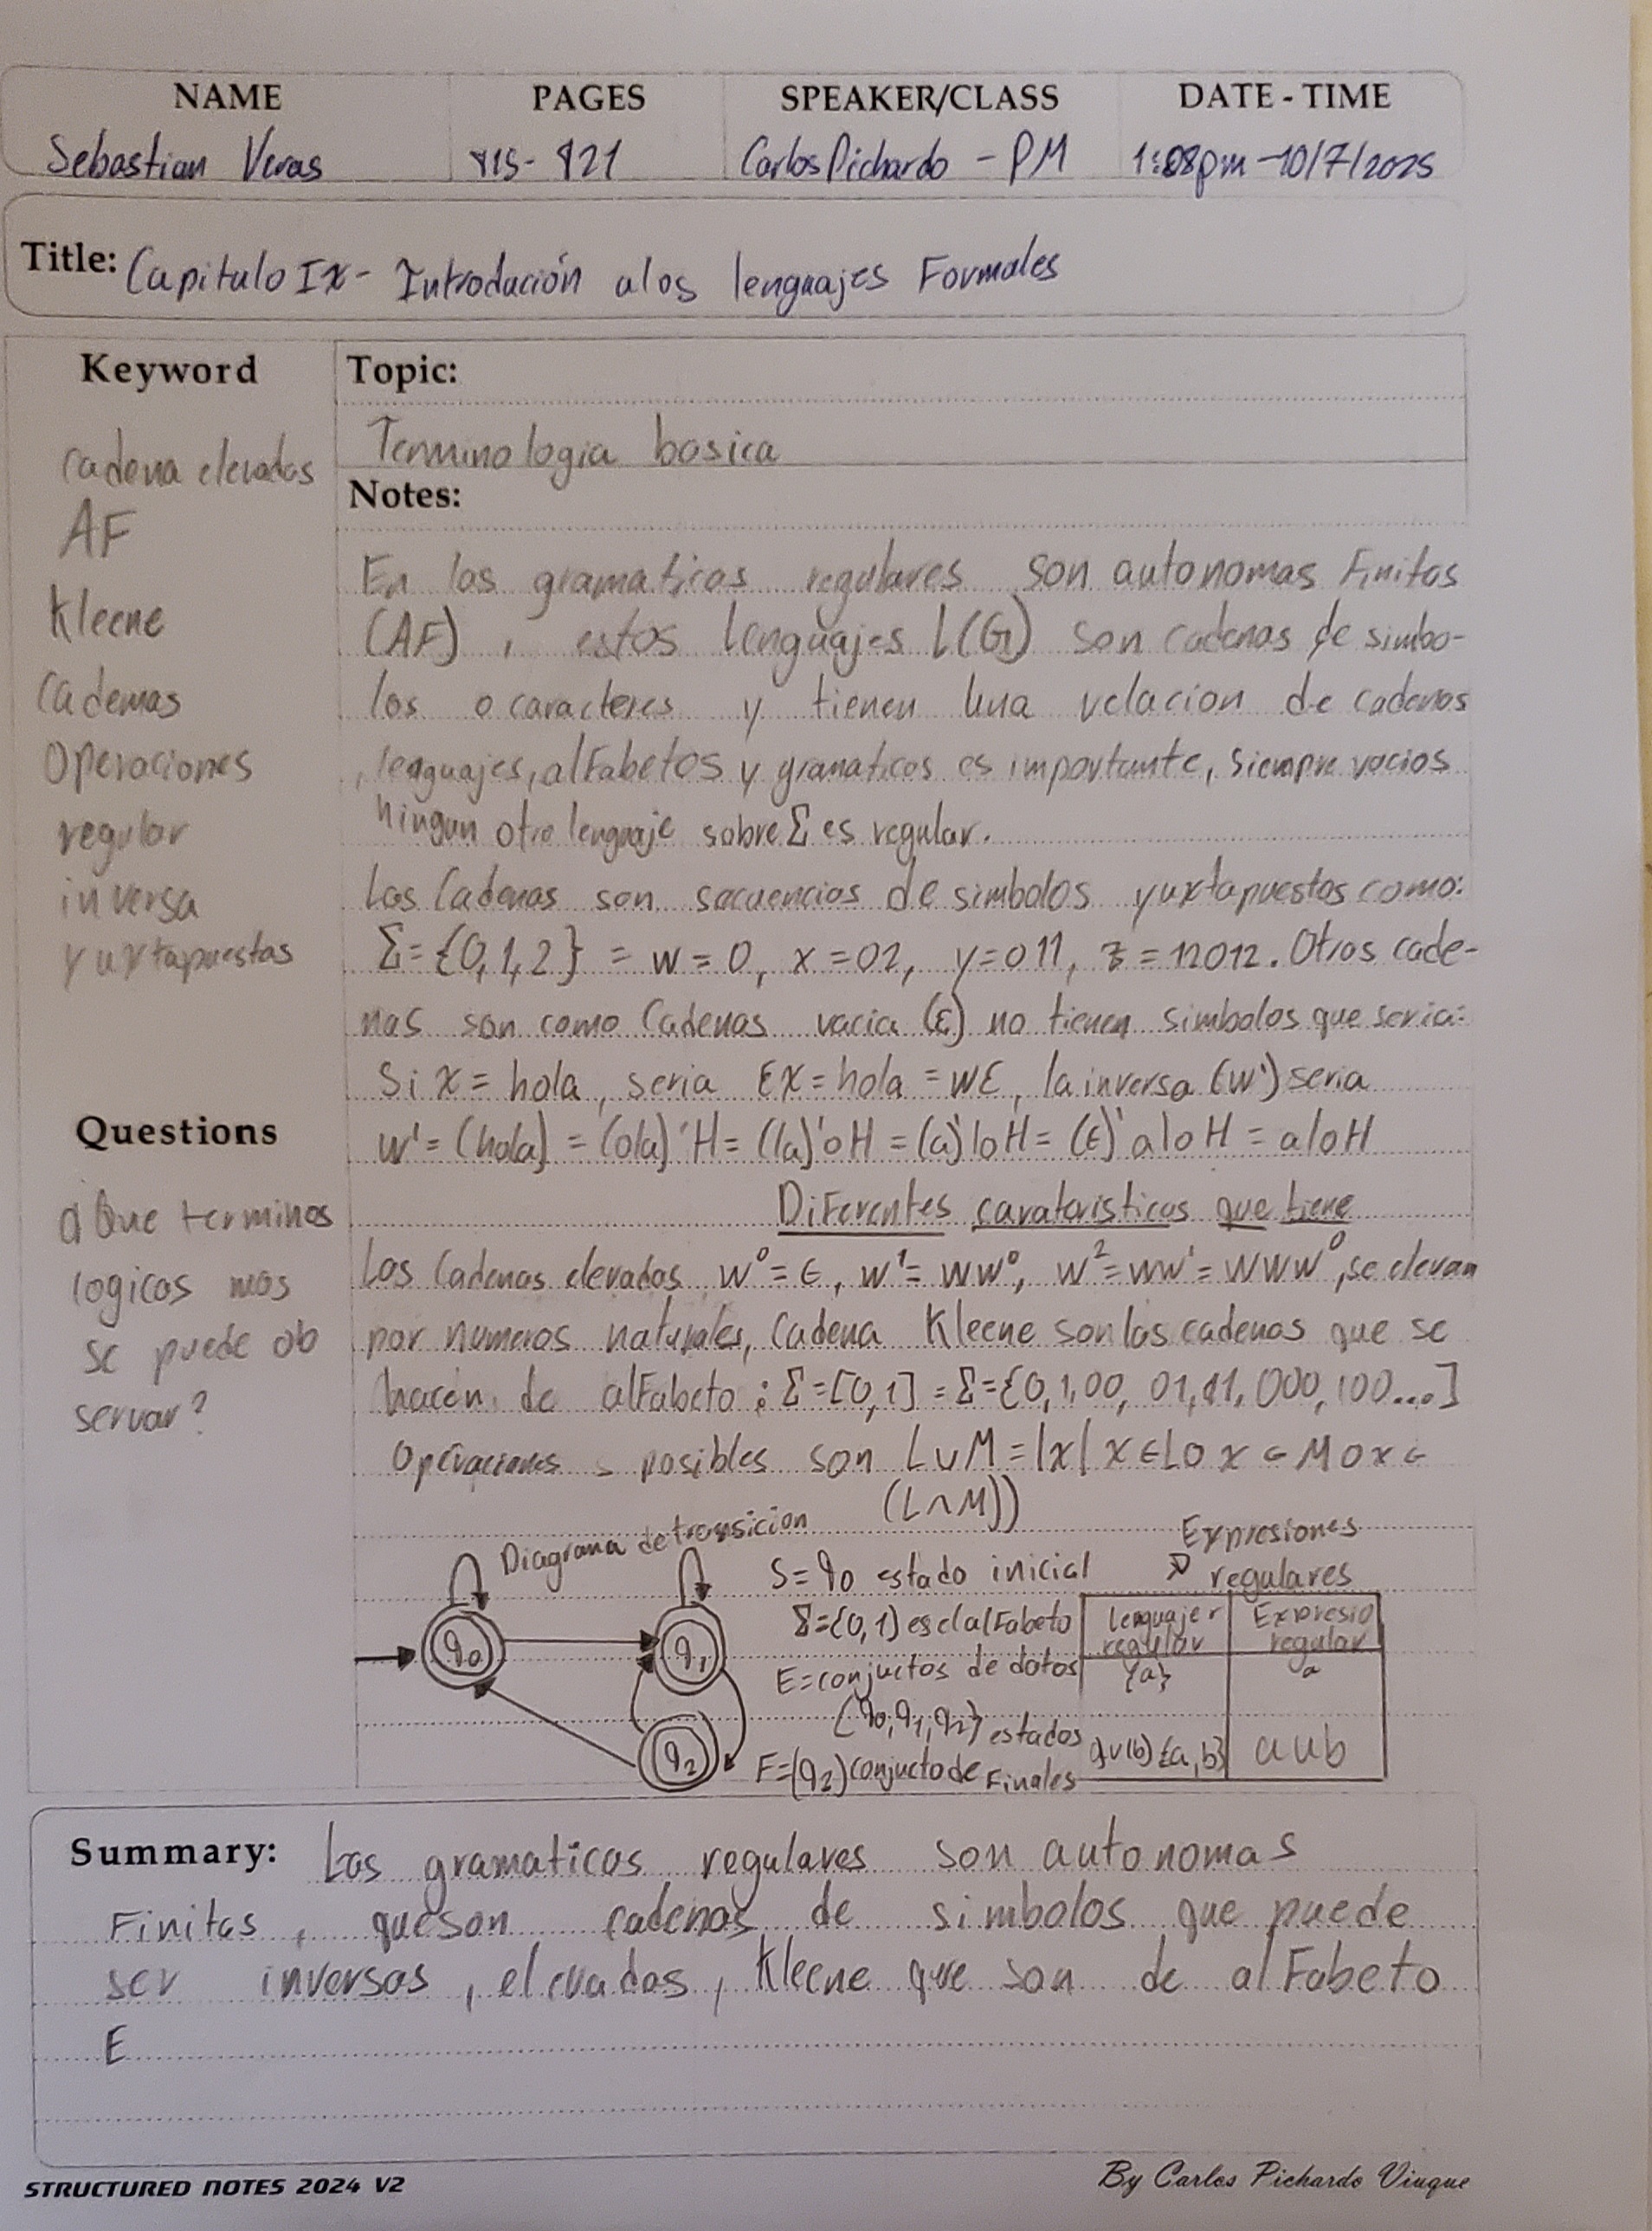 NAME PAGES SPEAKER/CLASS DATE - TIME
Sebastian Veras 415- 421 Carlos Pichardo - PM 1:08pm -10/7/2025
Title: Capitulo IX- Introdución a los lenguajes Formales
Keyword
cadena elevadas
AF
Kleene
Cadenas
Operaciones
regular
inversa
yuxtapuestas
Questions
Que terminos
logicos mas
se puede ob
servar?
Topic:
Terminologia basica
Notes:
En las gramaticas regulares son autonomas Finitas
(AF), estos lenguajes L(G) son cadenas de simbo-
los o caracteres y tienen una relacion de cadenas
, lenguajes, alFabetos y gramaticas es importante, Siempre vacios
ningun otro lenguaje sobre Σ es regular.
Las Cadenas son secuencias de simbolos yuxtapuestos como:
Σ={0,1,2} = w=0, x=02, y=011, z=12012. Otras cade-
nas son como Cadenas vacia (ε) no tienen simbolos que seria:
Si x = hola, seria εx=hola=wε, la inversa (w') seria
w'=(hola) = (ola)'H= ((la)'oH =(a)'loH= (ε)'aloH = aloH
DiFerentes caratoristicas que tiene
Las Cadenas elevadas w⁰=ε, w¹=ww⁰, w²=ww¹=www⁰, se elevan
por numeros naturales, Cadena Kleene son las cadenas que se
hacen de alFabeto: Σ=[0,1] = Σ={0,1,00, 01,11,000,100...]
Operaciones posibles son L∪M=|x| x∈L o x∈M o x∈
(L∩M))
Diagrama de transicion
q0
q1
q2
S=q0 estado inicial
Σ={0,1) es el alFabeto
E=conjuctos de datos
{q0,q1,q2} estados
F=(q2) conjucto de Finales
Expresiones
regulares
lenguajer regular Expresio regular
{a} a
∪(b) {a,b} a∪b
Summary: Las gramaticas regulares son autonomas
Finitas, que son cadenas de simbolos que puede
ser inversas, elevadas, Kleene que son de alFabeto
E
STRUCTURED NOTES 2024 V2
By Carlos Pichardo Viuque